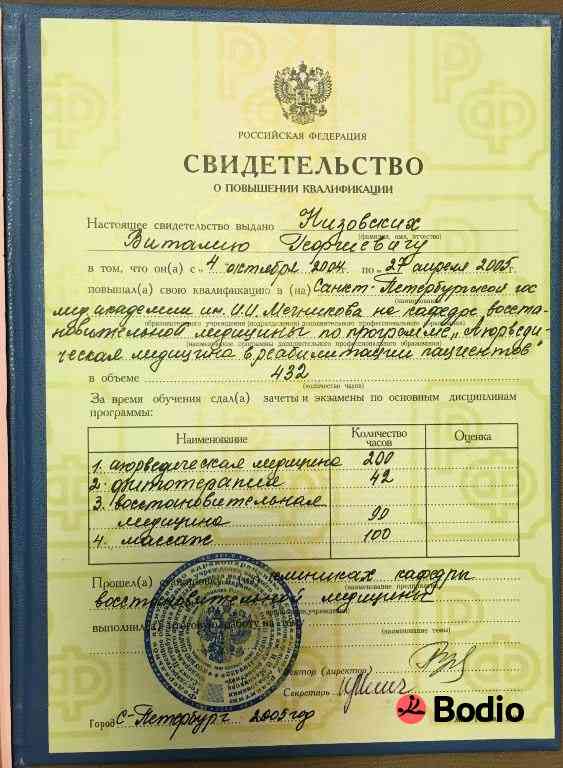 РОССИЙСКАЯ ФЕДЕРАЦИЯ
СВИДЕТЕЛЬСТВО
О ПОВЫШЕНИИ КВАЛИФИКАЦИИ
Настоящее свидетельство выдано Низовских
(фамилия, имя, отчество)
Виталию Георгиевичу
в том, что он(а) с „4 октября 2004 г. по „27 апреля 2005г.
повышал(а) свою квалификацию в (на) Санкт-Петербургской гос
(наименование)
мед академии им. И.И. Мечникова на кафедре восста-
образовательного учреждения (подразделения) дополнительного профессионального образования)
новительной медицины по программе „Аюрведи-
(наименование программы дополнительного профессионального образования)
ческая медицина в реабилитации пациентов"
в объеме 432
(количество часов)
За время обучения сдал(а) зачеты и экзамены по основным дисциплинам
программы:
Наименование Количество часов Оценка
1. аюрведическая медицина 200
2. фитотерапия 42
3. восстановительная
медицина 90
4. массаж 100
Прошел(а) стажировку в (на) клиниках кафедры
(наименование предприятия,
восстановительной медицины
выполнил(а) итоговую работу на тему
(наименование темы)
Ректор (директор)
Секретарь
Bodio
Город С-Петербург 2005 год